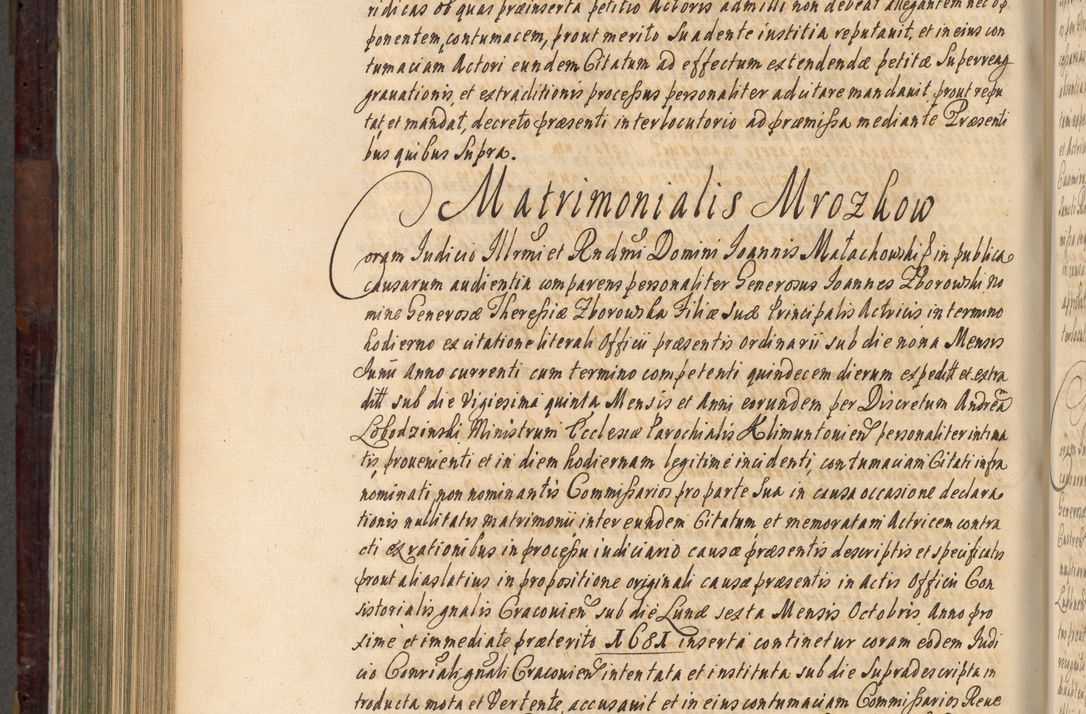 ridicas ob quas præinserta petitio Actoris admitti non debeat allegantem nec op
ponentem, contumacem, prout merito Suadente iustitia reputauit, et in eius con
tumaciam Actori eundem Citatum ad effectum extendendæ petitæ Superreag
grauationis, et extraditionis processus personaliter adcitare mandauit, prout repu
tat et mandat, decreto præsenti interlocutorio ad præmissa mediante Præsenti
bus quibus Supra.
Matrimonialis Mrozkow
Coram Judicio Illrmi et Rndmi Domini Joannis Małachowski in publica
causarum audientia comparens personaliter Generosus Joannes Zborowski no
mine Generosæ Theressiæ Zborowska Filiæ Suæ Principalis Actricis in termino
hodierno ex citatione literali Officii præsentis ordinarii sub die nona Mensis
Junii Anno currenti cum termino competenti quindecem dierum expeditt et extra
ditt sub die Vigiesima quinta Mensis et Anni eorundem per Discretum Andrea
Lobodzinski Ministrum Ecclesiæ Parochialis Klimuntouien personaliter intima
tis, prouenienti et in diem hodiernam legitime incidenti, contumaciam Citati infra
nominati, non nominantis Commissarios pro parte Sua in causa occasione declara
tionis nullitatis matrimonii inter eundem Citatum et memoratam Actricem contra
cti ex rationibus in processu iudiciario causæ præsentis descriptis et specificatis
prout alias latius in propositione originali causæ præsentis in Actis Officii Con
sistorialis gnalis Cracouien sub die Lunæ sexta Mensis Octobris Anno pro
xime et immediate præterito 1681 inserta continetur coram eodem Judi
cio Conriali gnali Cracouien intentata et instituta sub die Supradescripta in
troducta mota et Vertente, accusauit et in eius contumaciam Commissarios Reue